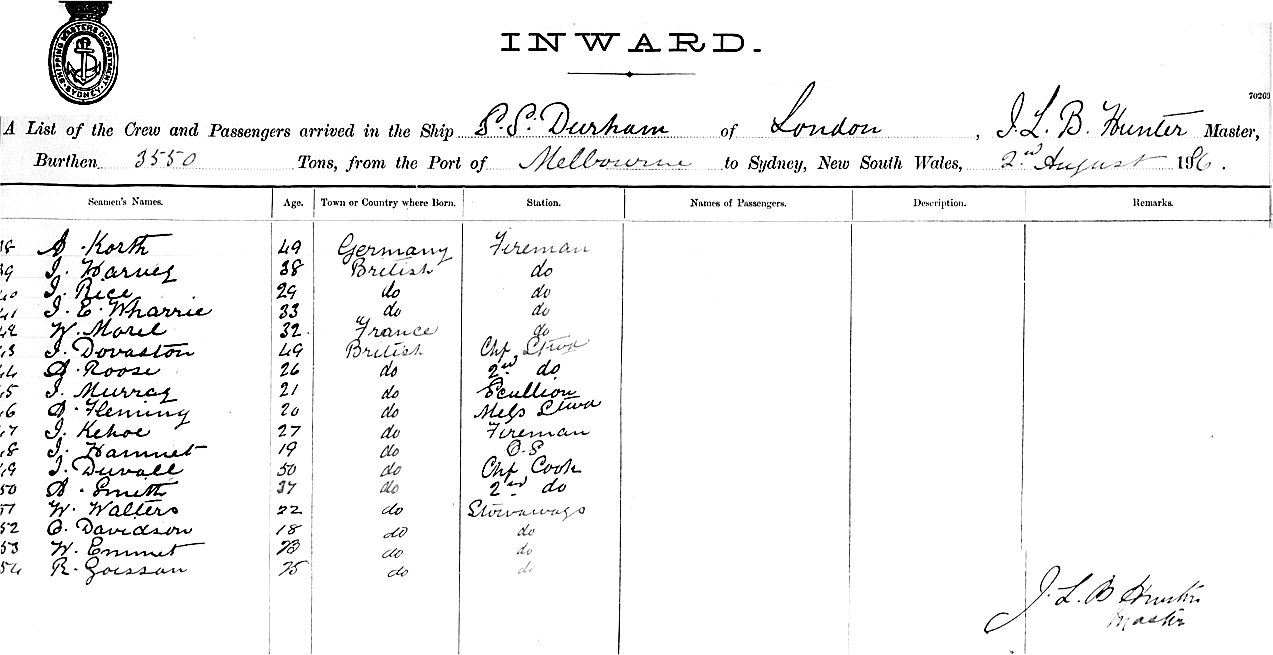 SHIPPING MASTERS DEPARTMENT. SYDNEY.
INWARD.
70269
A List of the Crew and Passengers arrived in the Ship S.S. Durham of London, J. L. B. Hunter Master,
Burthen 3550 Tons, from the Port of Melbourne to Sydney, New South Wales, 2nd August 186.
Seamen's Names. Age. Town or Country where Born. Station. Names of Passengers. Description. Remarks.
38 A. Korth 49 Germany Fireman
39 J. Harvey 38 British do
40 J. Rice 29 do do
41 J. E. Wharrie 33 do do
42 W. Morel 32 France do
43 J. Dovaston 49 British Chf Stwd
44 A. Roose 26 do 2nd do
45 J. Murray 21 do Scullion
46 A. Fleming 20 do Mess Stwd
47 J. Kehoe 27 do Fireman
48 J. Hamnet 19 do O.S
49 J. Duvall 50 do Chf Cook
50 A. Smith 37 do 2nd do
51 W. Walters 22 do Stowaways
52 C. Davidson 18 do do
53 W. Emmet 23 do do
54 R. 25 do do
J. L. B Hunter
Master